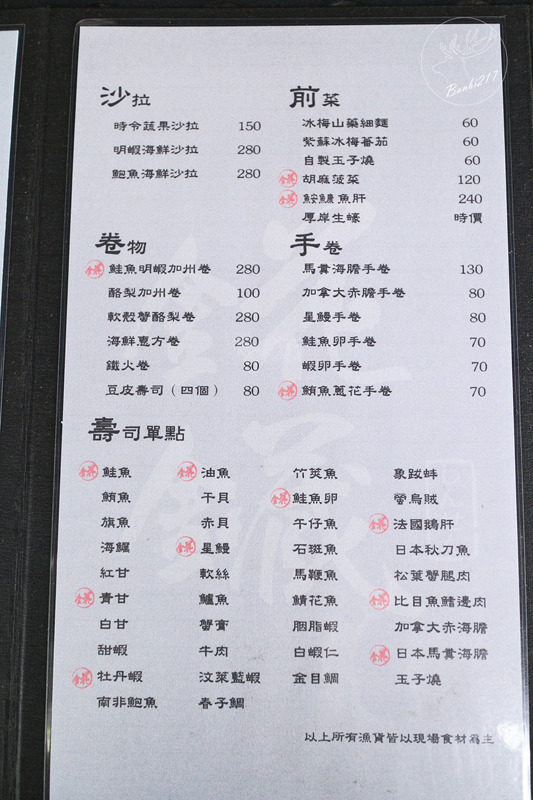 Bunki217
沙拉
時令蔬果沙拉 150
明蝦海鮮沙拉 280
鮑魚海鮮沙拉 280
前菜
冰梅山藥細麵 60
紫蘇冰梅蕃茄 60
自製玉子燒 60
胡麻菠菜 120
鮟鱇魚肝 240
厚岸生蠔 時價
卷物
鮭魚明蝦加州卷 280
酪梨加州卷 100
軟殼蟹酪梨卷 280
海鮮惠方卷 280
鐵火卷 80
豆皮壽司（四個） 80
手卷
馬糞海膽手卷 130
加拿大赤膽手卷 80
星鰻手卷 80
鮭魚卵手卷 70
蝦卵手卷 70
鮪魚蔥花手卷 70
壽司單點
鮭魚 油魚 竹筴魚 象跋蚌
鮪魚 干貝 鮭魚卵 螢烏賊
旗魚 赤貝 午仔魚 法國鵝肝
海鱺 星鰻 石斑魚 日本秋刀魚
紅甘 軟絲 馬鞭魚 松葉蟹腿肉
青甘 鱸魚 鯖花魚 比目魚鰭邊肉
白甘 蟹膏 胭脂蝦 加拿大赤海膽
甜蝦 牛肉 白蝦仁 日本馬糞海膽
牡丹蝦 汶萊藍蝦 金目鯛 玉子燒
南非鮑魚 春子鯛
以上所有漁貨皆以現場食材為主